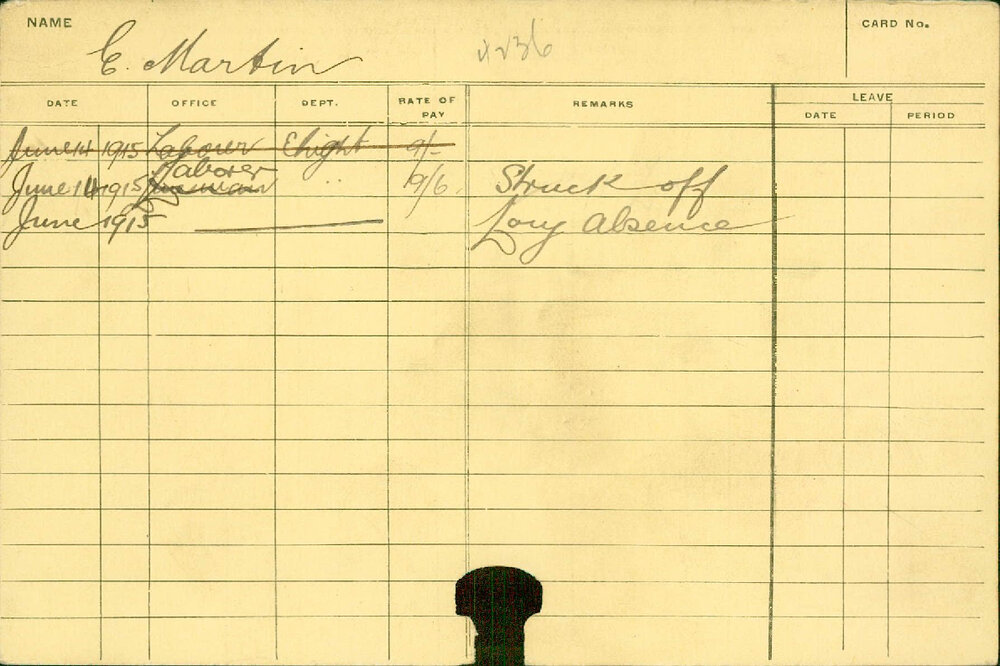 NAME
E. Martin
4236
CARD No.
DATE OFFICE DEPT. RATE OF PAY REMARKS LEAVE
DATE PERIOD
June 14 1915 Laborer 9/-
June 14 1915 Laborer " 9/6. Struck off
June 1915 Long Absence